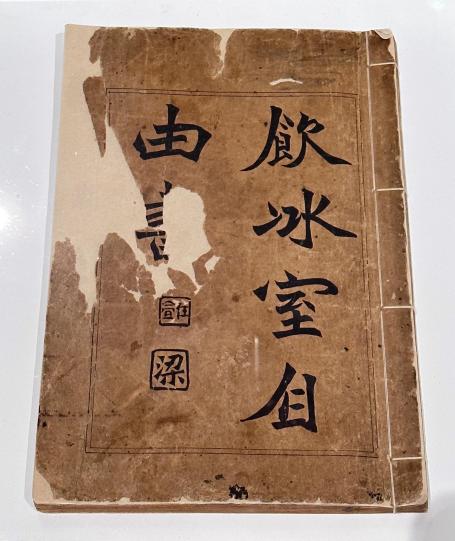 飲冰室自
由
梁